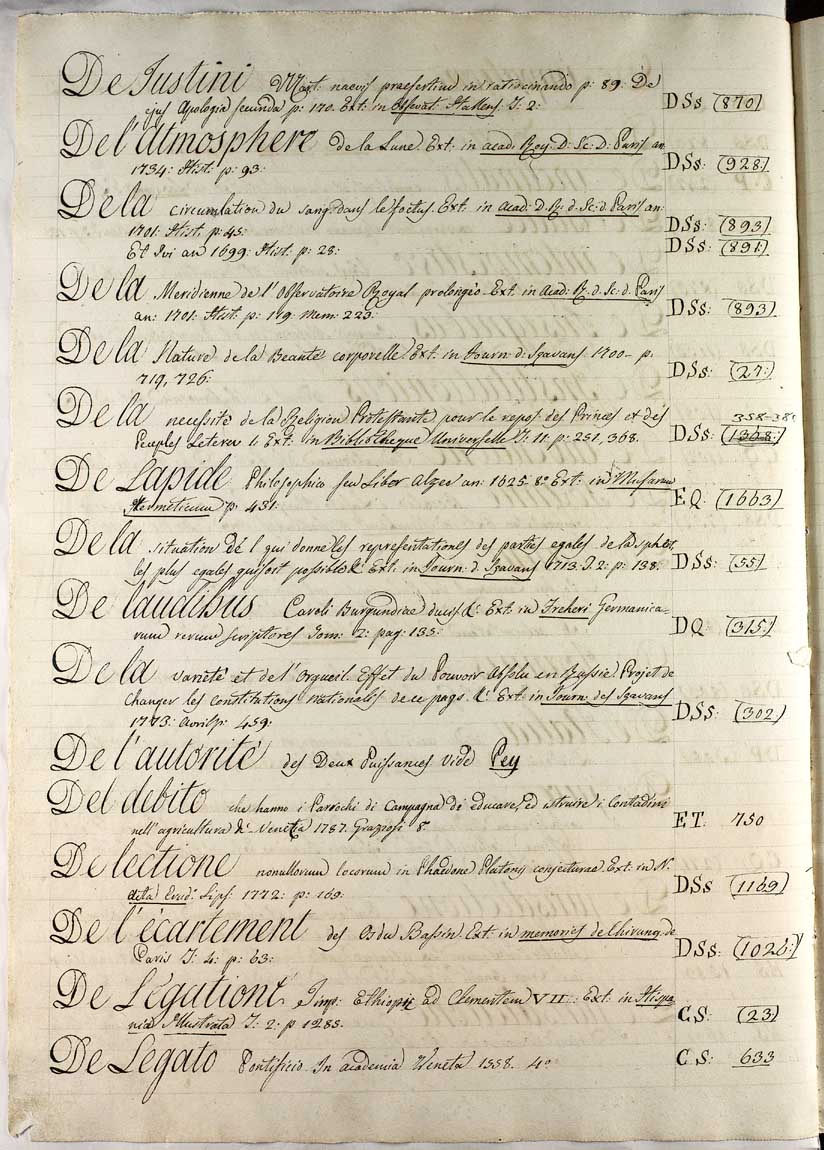 De Justini Mart: naevis praesertim in ratiocinando p: 89: De
ejus Apologia secunda p: 170. Ext: in Observat: Hallens: T: 2: DSs (870)
De l'atmosphere de la Lune. Ext: in acad: Roy: D: Sc: D: Paris an:
1734: Hist: p: 93: DSs: (928:)
De la circulation du sang dans le foetus. Ext: in Acad: D. R: d. Sc: d. Paris an:
1701: Hist. p: 45: DSs: (893)
Et Ivi an 1699: Hist: p: 25: DSs: (891:)
De la Meridienne de l'Observatoire Royal prolongée. Ext: in Acad: R. d. Sc: d. Paris
an: 1701: Hist: p: 119: Mem: 223: DSs: (893)
De la Nature de la Beauté corporelle. Ext: in Journ: d: Scavans. 1700 - p:
719, 726: DSs: (27:)
De la necessité de la Religion Protestante pour le repos des Princes et des
358-38
Peuples Ext: in Bibliotheque Universelle T: 11: p: 251, 368. DSs: (1368:)
De Lapide Philosophico seu Liber Alze an: 1625. 8o Ext: in Musaeum
Hermeticum p: 431: EQ: (1663)
De la situation de l qui donne les representationes des parties egales de la Sphere
les plus egales qui soit possible &: Ext: in Journ: d: Scavans 1713: T: 2: p: 138: DSs: (55)
De laudibus Caroli Burgundiae ducis. &: Ext: in Freheri Germanica-
rum rerum scriptores Tom: 2: pag: 135: DQ (315)
De la varieté et de l'Orgueil. Effet du Pouvoir Absolu en Russie. Projet de
changer les constitutions Nationales de ce pays. &: Ext: in Journ: des Scavans
1773: Avril p: 459: DSs: (302)
De l'autorité des Deux Puissances Vide Pey
Del debito che hanno i Parochi di Campagna di educare, ed istruire i Contadini
nell'agricultura & Venezia 1787. Graziosi 8. ET: 750
De lectione nonullorum locorum in Phaedone Platonis conjecturae. Ext: in N.
Acta Erud: Lips: 1772: p: 169: DSs (1169)
De l'écartement des Os du Bassin. Ext: in memories de Chirurg: de
Paris T: 4: p: 63: DSs: (1026:)
De Legatione Imp: Ethiopie ad Clementem VII: Ext: in Hispa
nia Illustrata T: 2: p 1288. C.S: (23)
De Legato Pontificio. In academia Veneta 1558. 4o C.S: 633